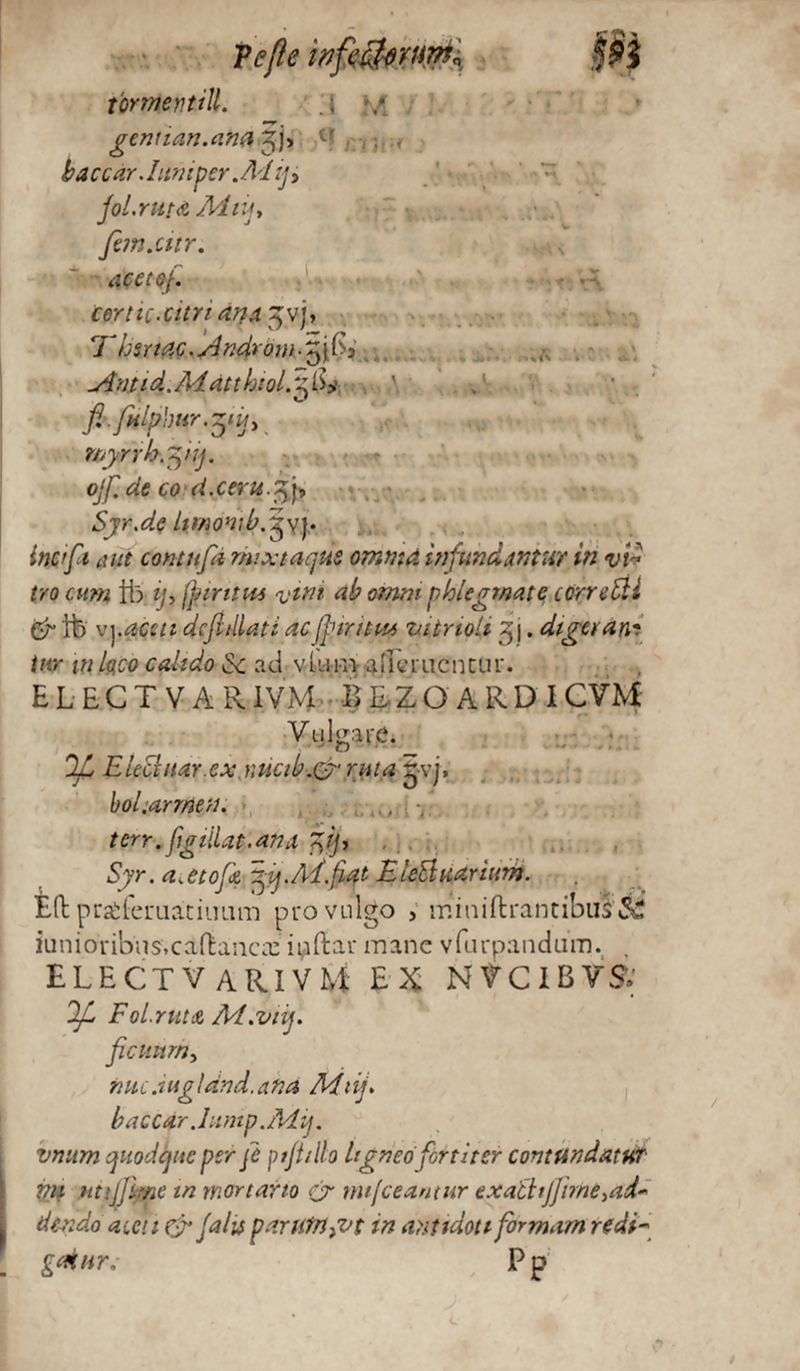 Peſte infectorum. 593
tormentill.
gentian. ana ℥j,
baccar. Iuniper. M ij,
fol. rutæ M iij,
ſem. citr.
acetoſ.
cortic. citri ana ʒvj,
Theriac. Androm. ℥jß,
Antid. Matthiol. ℥ß,
fl. ſulphur. ʒiij,
myrrh. ʒiij.
oſſ. de co d. ceru. ʒj,
Syr. de limonib. ℥vj.
inciſa aut contuſa mixtaque omnia infundantur in vi-
tro cum ℔ ij, ſpiritus vini ab omni phlegmate correcti
& ℔ vj. aceti deſtillati ac ſpiritus vitrioli ʒj. digeran-
tur in loco calido & ad vſum aſſeruentur.
ELECTVARIVM BEZOARDICVM
Vulgare.
♃ Electuar. ex nucib. & ruta ℥vj,
bol. armen.
terr. ſigillat. ana ʒij,
Syr. acetoſæ ℥ij. M. fiat Electuarium.
Eſt præſeruatiuum pro vulgo, miniſtrantibus &
iunioribus, caſtaneæ inſtar mane vſurpandum.
ELECTVARIVM EX NVCIBVS.
♃ Fol. rutæ M. viij.
ficuum,
nuc. iugland. ana M iij.
baccar. Iunip. M ij.
vnum quodque per ſe piſtillo ligneo fortiter contundatur
nutiſſime in mortario & miſceantur exactiſſime, ad-
dendo aceti & ſalis parum, vt in antidoti formam redi-
gatur. Pp